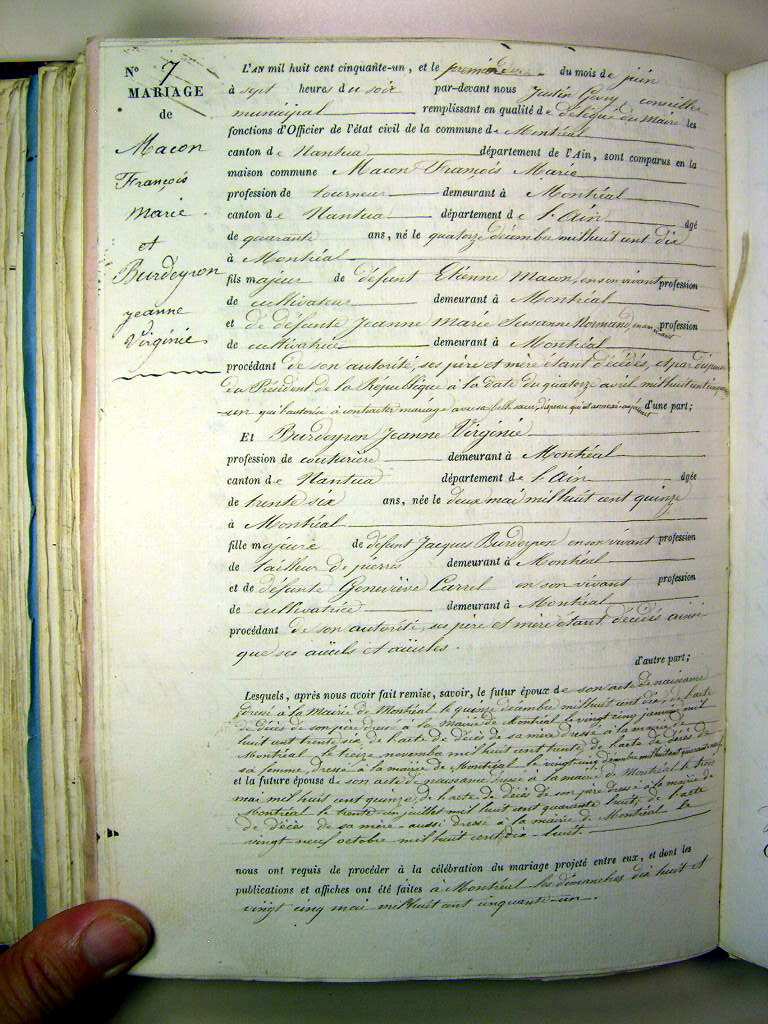 N° 7
MARIAGE
de
Macon
François
Marie
et
Burdeyron
Jeanne
Virginie
L'AN mil huit cent cinquante-un, et le premier du mois de juin
à sept heures du soir par-devant nous Justin conseiller
municipal remplissant en qualité de délégué du Maire les
fonctions d'Officier de l'état civil de la commune de Montréal
canton de Nantua département de l'Ain, sont comparus en la
maison commune Macon François Marie
profession de tourneur demeurant à Montréal
canton de Nantua département de l'Ain âgé
de quarante ans, né le quatorze décembre mil huit cent dix
à Montréal
fils majeur de défunt Etienne Macon, en son vivant profession
de cultivateur demeurant à Montréal
et de défunte Jeanne Marie Susanne Normand, en son vivant profession
de cultivatrice demeurant à Montréal
procédant de son autorité, ses père et mère étant décédés, et par dispense
du Président de la République à la date du quatorze avril mil huit cent cinquante
un qui l'autorise à contracter mariage avec sa belle sœur, d'une part;
Et Burdeyron Jeanne Virginie
profession de couturière demeurant à Montréal
canton de Nantua département de l'Ain âgée
de trente six ans, née le deux mai mil huit cent quinze
à Montréal
fille majeure de défunt Jacques Burdeyron en son vivant profession
de tailleur de pierres demeurant à Montréal
et de défunte Geneviève Carrel en son vivant profession
de cultivatrice demeurant à Montréal
procédant de son autorité, ses père et mère étant décédés ainsi
que ses aïeuls et aïeules.
d'autre part;
Lesquels, après nous avoir fait remise, savoir, le futur époux de son acte de naissance
dressé à la Mairie de Montréal le quinze décembre mil huit cent dix de l'acte
de décès de son père dressé à la mairie de Montréal le vingt cinq janvier mil
huit cent trente dix de l'acte de décès de sa mère dressé à la mairie de
Montréal le treize novembre mil huit cent trente de l'acte de décès de
sa femme, dressé à la mairie de Montréal le vingt cinq décembre mil huit cent quarante
et la future épouse de son acte de naissance dressé à la mairie de Montréal le trois
mai mil huit cent quinze, de l'acte de décès de son père dressé à la mairie de
Montréal le trente un juillet mil huit cent quarante huit, de l'acte
de décès de sa mère aussi dressé à la mairie de Montréal le
vingt neuf octobre mil huit cent dix-huit
nous ont requis de procéder à la célébration du mariage projeté entre eux, et dont les
publications et affiches ont été faites à Montréal les dimanches dix huit et
vingt cinq mai mil huit cent cinquante-un.